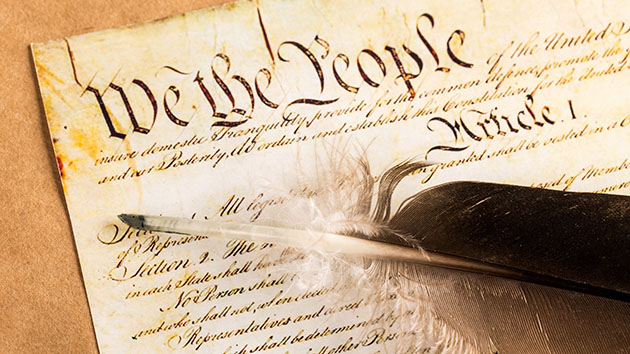 We the People
of the United
insure domestic Tranquility, provide for the common defence, promote the
and our Posterity, do ordain and establish this Constitution for the United
Article. I.
granted shall be vested in a
All legis
of Represen
Section. 2. The
in each State shall
No Person shall
and who shall not, when elected
Representatives and
which shall be determined by
other Person